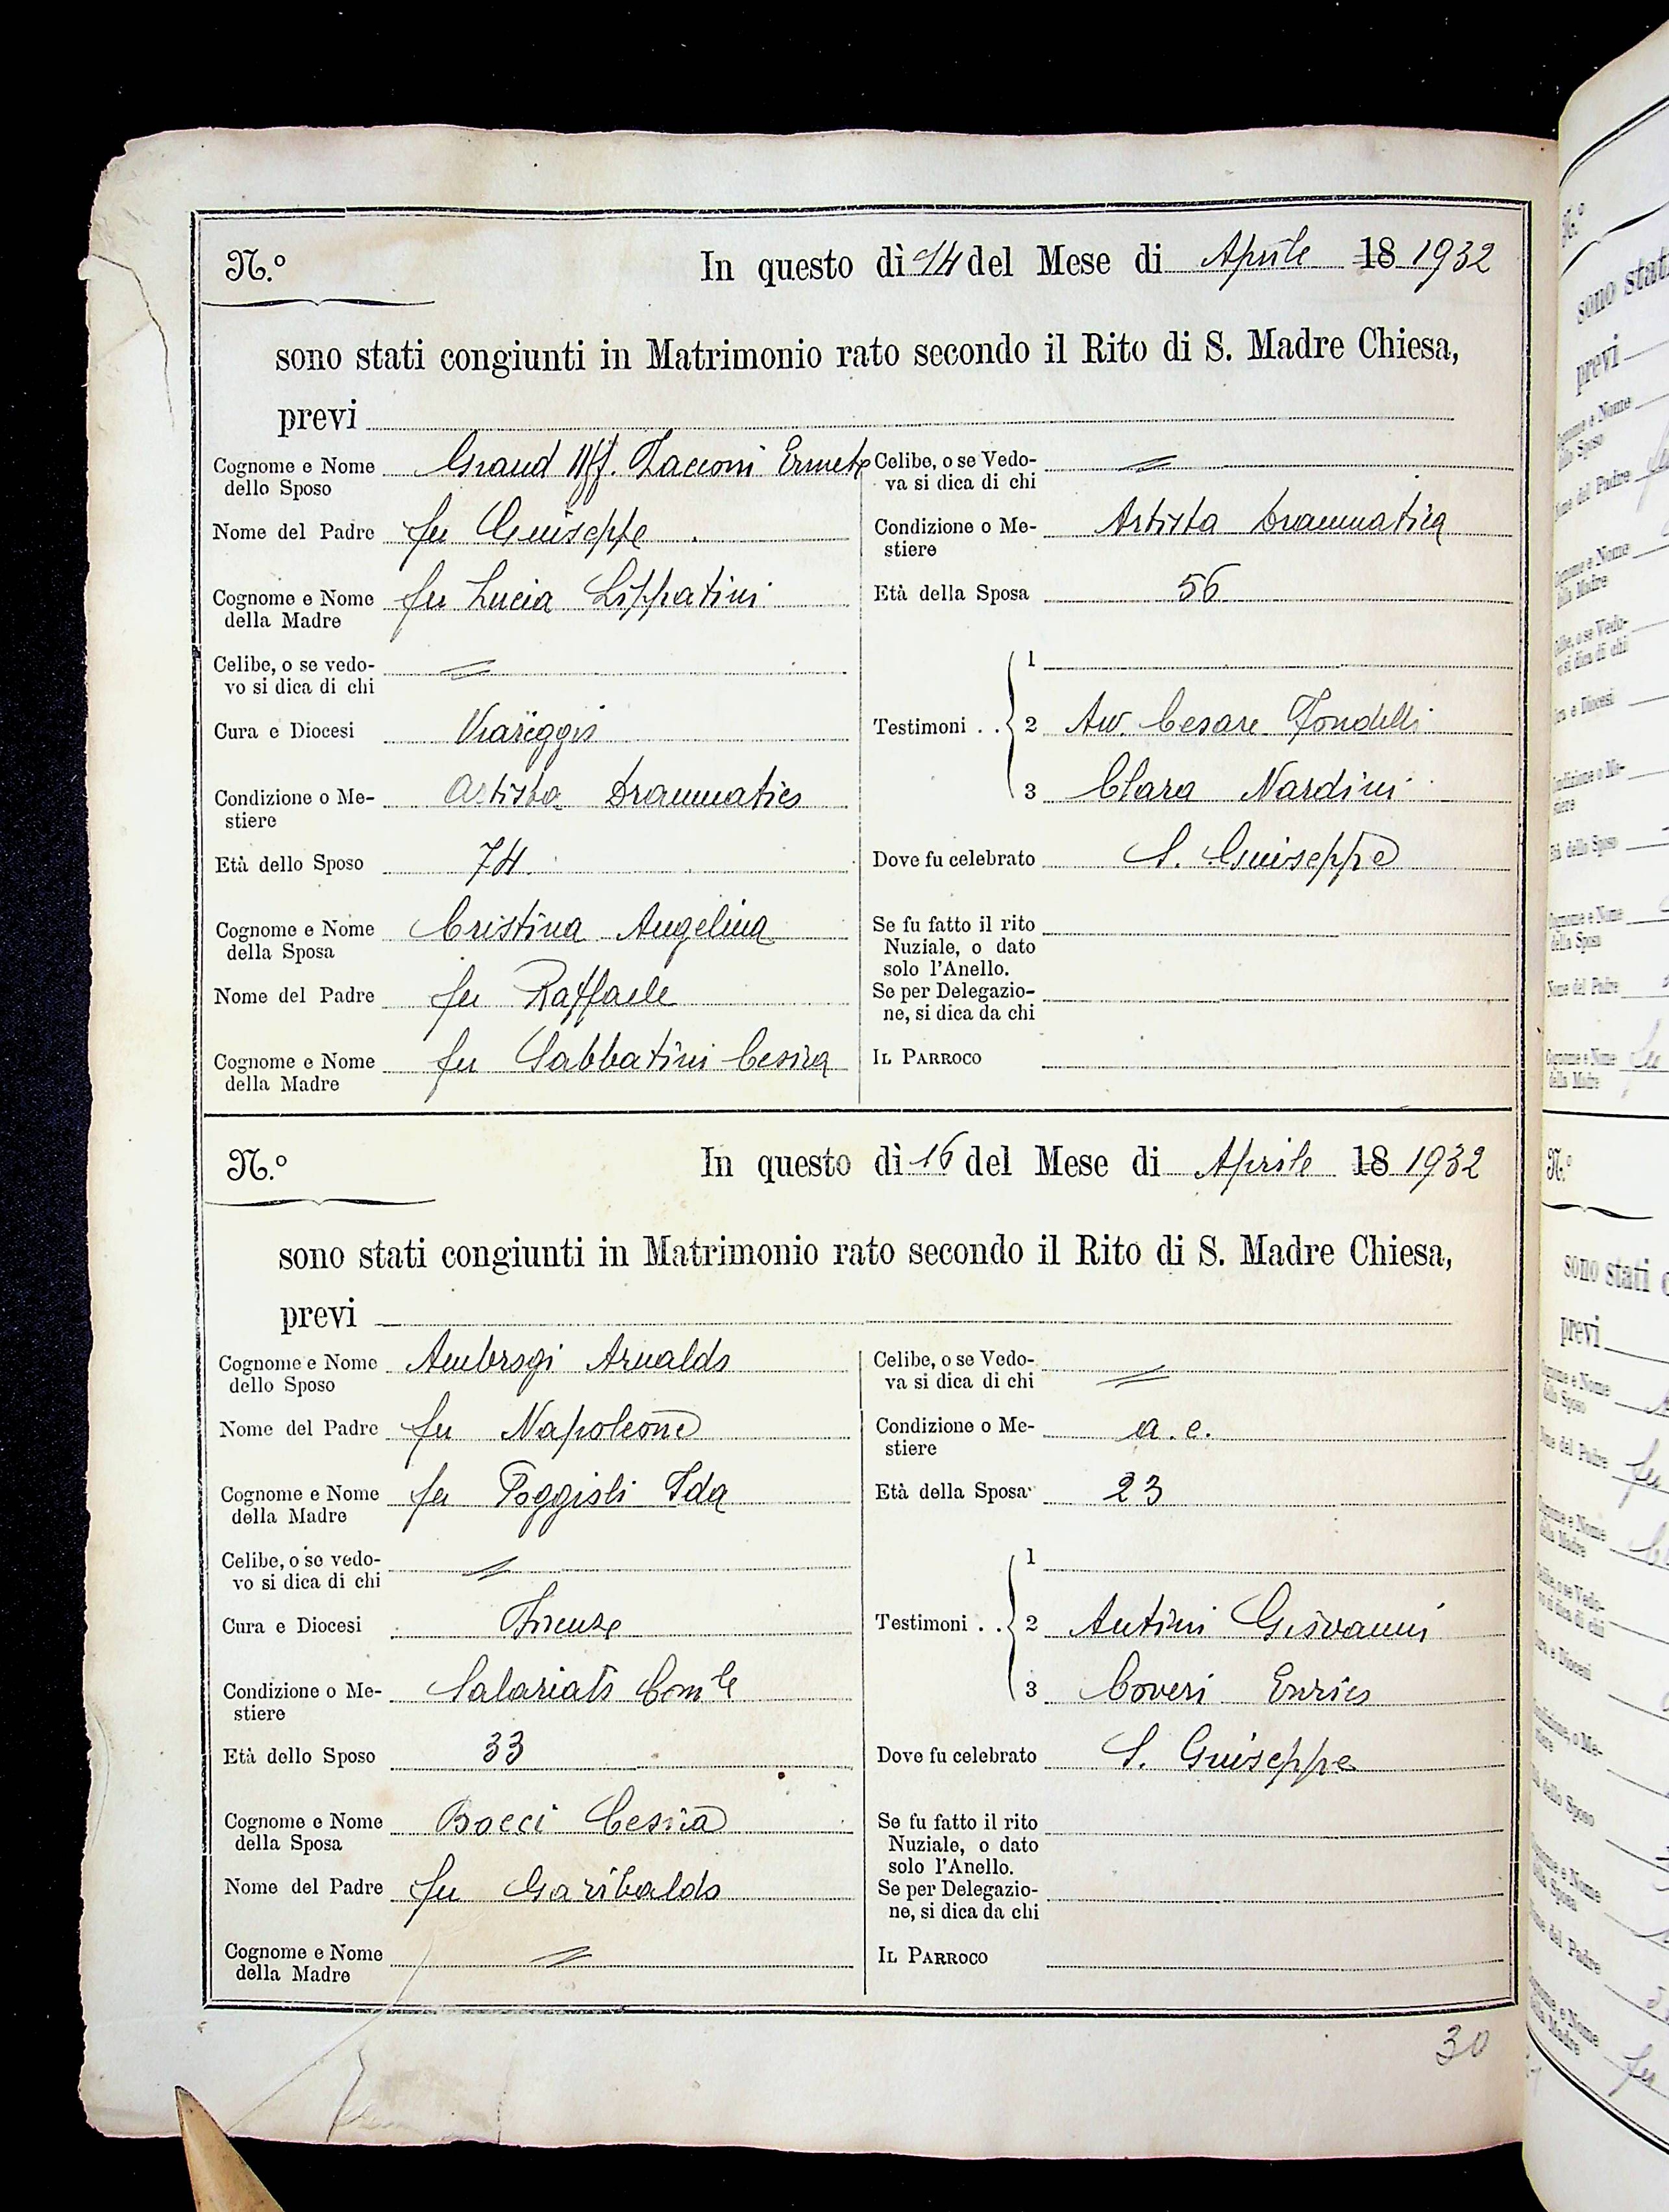 N.º In questo dì 14 del Mese di Aprile 18 1932
sono stati congiunti in Matrimonio rato secondo il Rito di S. Madre Chiesa,
previ
Cognome e Nome dello Sposo Grand Uff. Zacconi Ermete
Nome del Padre fu Giuseppe
Cognome e Nome della Madre fu Lucia Lippatini
Celibe, o se vedovo si dica di chi =
Cura e Diocesi Viareggio
Condizione o Mestiere Artista Drammatico
Età dello Sposo 74
Cognome e Nome della Sposa Cristina Angelina
Nome del Padre fu Raffaele
Cognome e Nome della Madre fu Sabbatini Cesira
Celibe, o se Vedova si dica di chi =
Condizione o Mestiere Artista Drammatica
Età della Sposa 56
Testimoni . . 1
2 Avv. Cesare Fondelli
3 Clara Nardini
Dove fu celebrato S. Giuseppe
Se fu fatto il rito Nuziale, o dato solo l'Anello.
Se per Delegazione, si dica da chi
IL PARROCO
N.º In questo dì 16 del Mese di Aprile 18 1932
sono stati congiunti in Matrimonio rato secondo il Rito di S. Madre Chiesa,
previ
Cognome e Nome dello Sposo Ambrogi Arnaldo
Nome del Padre fu Napoleone
Cognome e Nome della Madre fu Poggioli Ida
Celibe, o se vedovo si dica di chi =
Cura e Diocesi Firenze
Condizione o Mestiere Salariato Comle
Età dello Sposo 33
Cognome e Nome della Sposa Bacci Cesira
Nome del Padre fu Garibaldo
Cognome e Nome della Madre =
Celibe, o se Vedova si dica di chi =
Condizione o Mestiere a. c.
Età della Sposa 23
Testimoni . . 1
2 Antini Giovanni
3 Coveri Enrico
Dove fu celebrato S. Giuseppe
Se fu fatto il rito Nuziale, o dato solo l'Anello.
Se per Delegazione, si dica da chi
IL PARROCO
30